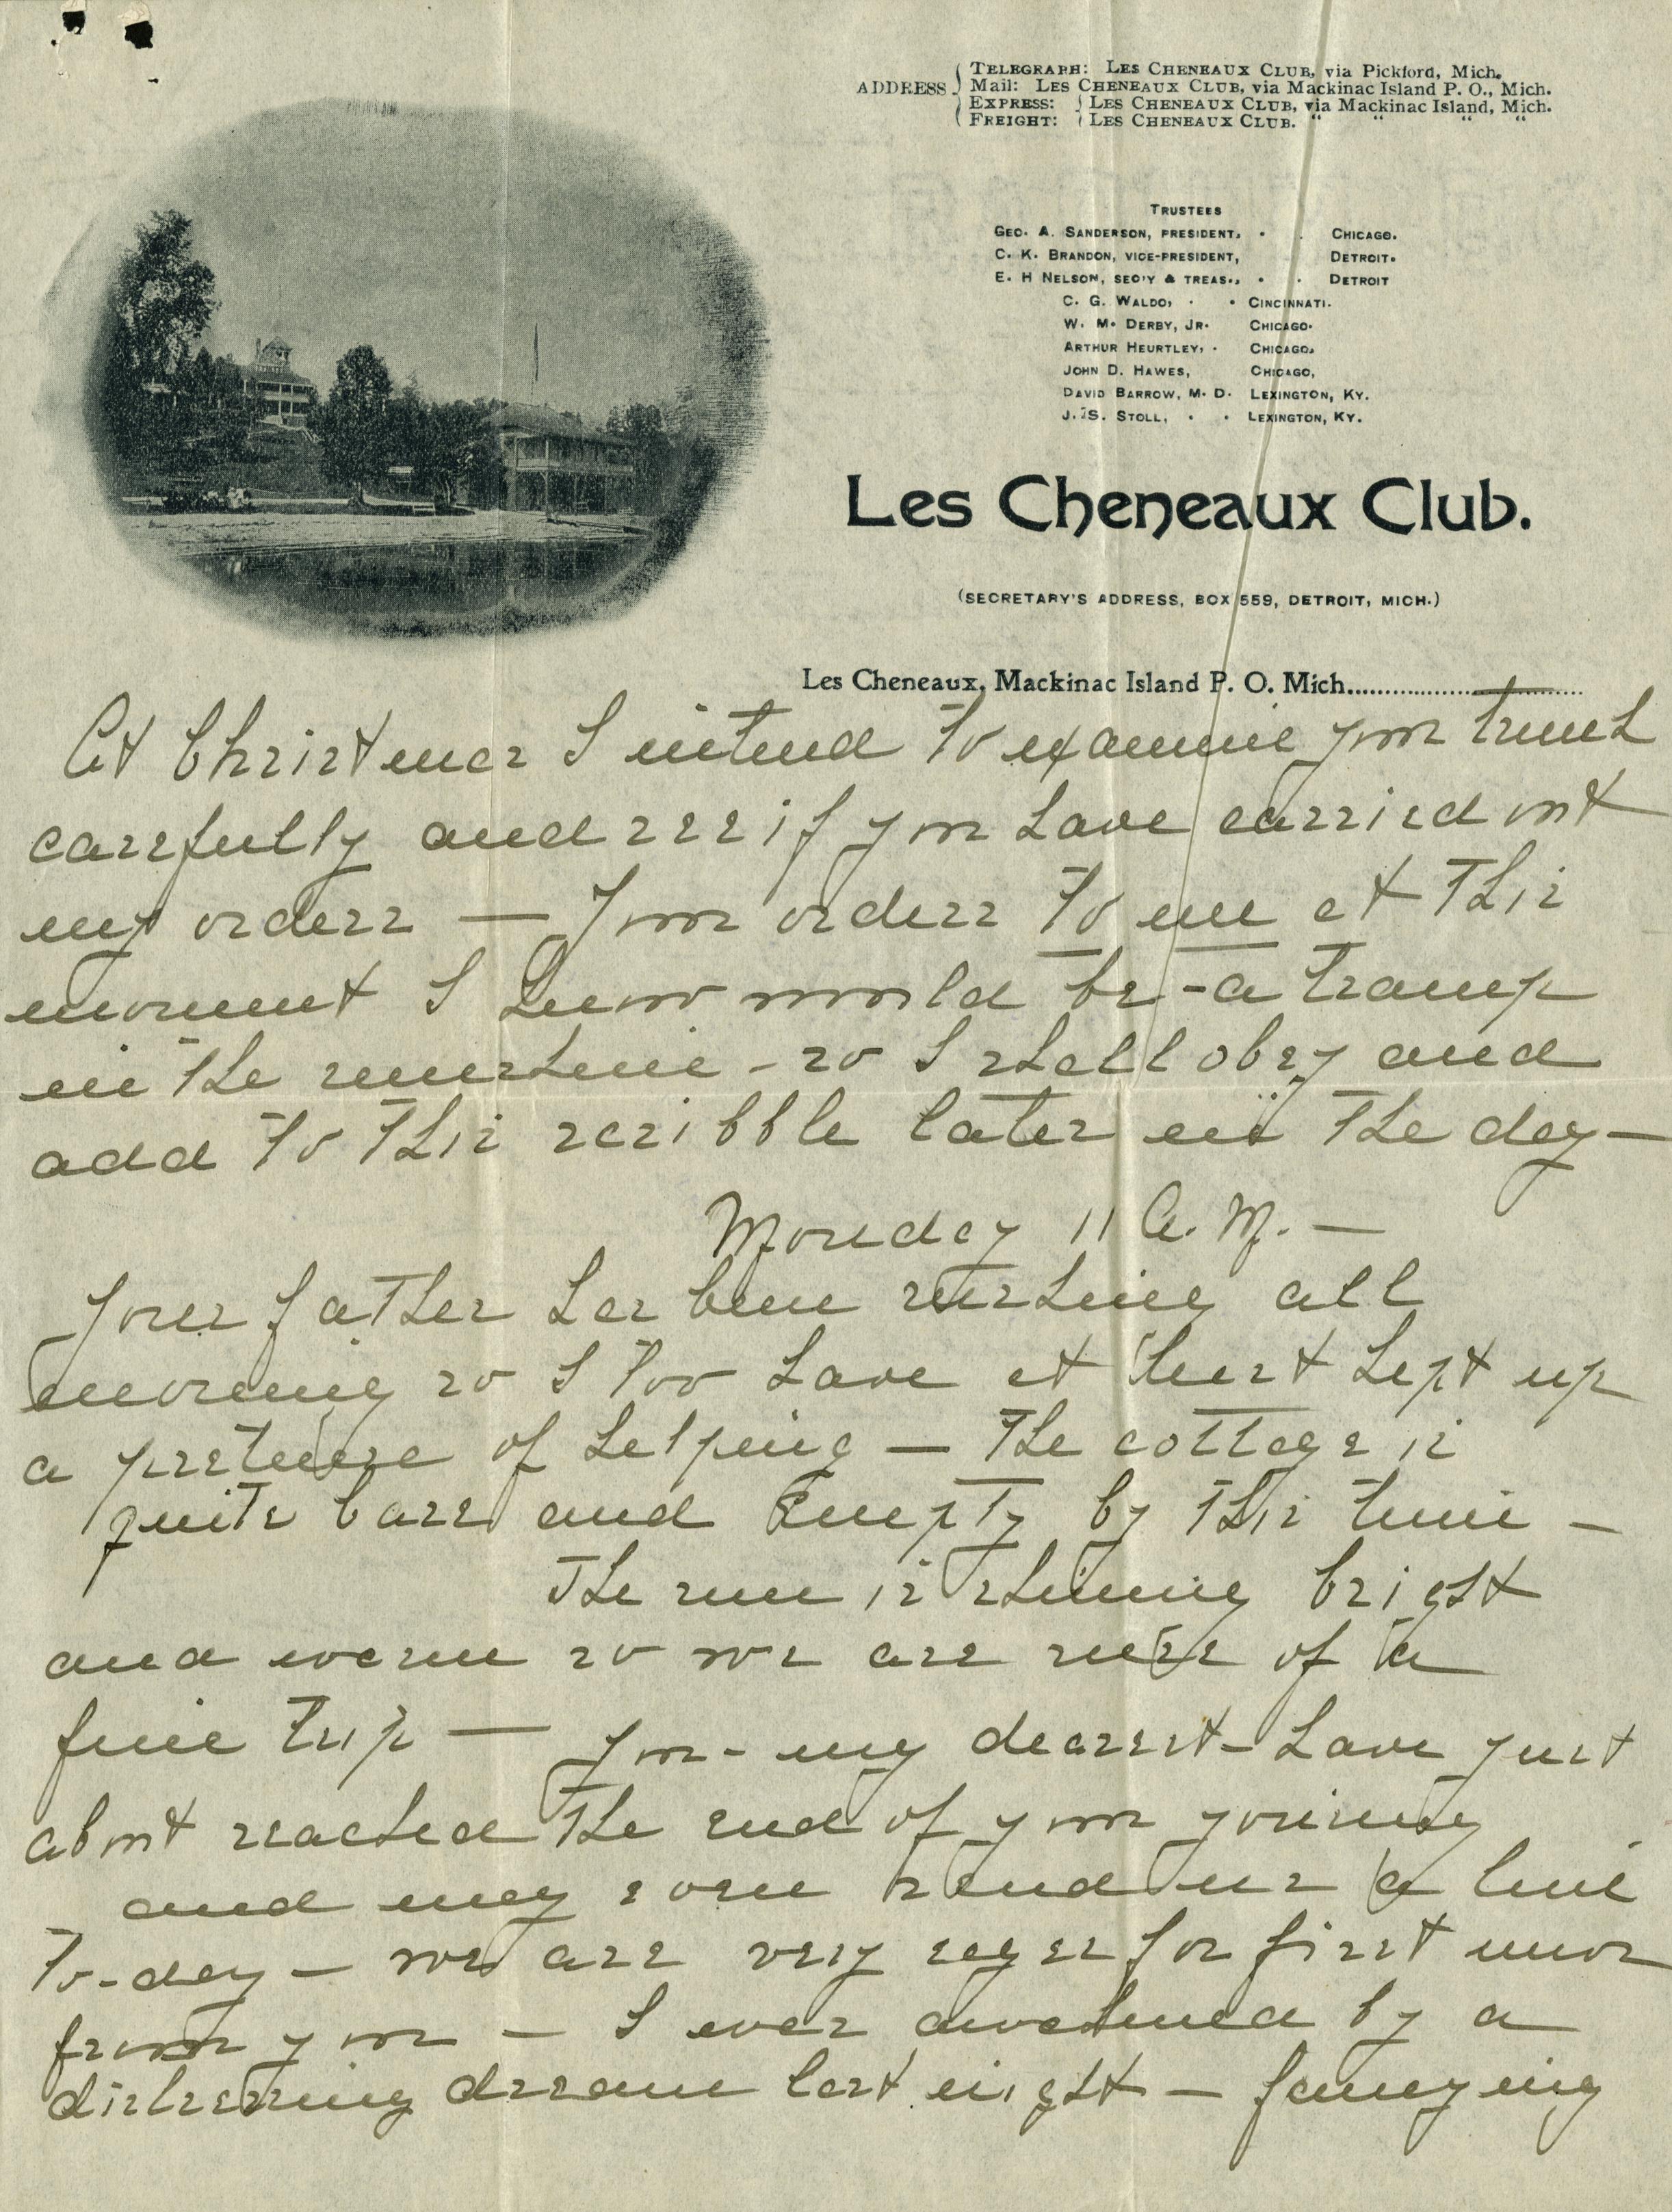 ADDRESS
TELEGRAPH: LES CHENEAUX CLUB, via Pickford, Mich.
Mail: LES CHENEAUX CLUB, via Mackinac Island P. O., Mich.
EXPRESS: LES CHENEAUX CLUB, via Mackinac Island, Mich.
FREIGHT: LES CHENEAUX CLUB. " " " "
TRUSTEES
GEO. A. SANDERSON, PRESIDENT, CHICAGO.
C. K. BRANDON, VICE-PRESIDENT, DETROIT.
E. H NELSON, SEC'Y & TREAS., DETROIT
C. G. WALDO, CINCINNATI.
W. M. DERBY, JR. CHICAGO.
ARTHUR HEURTLEY, CHICAGO.
JOHN D. HAWES, CHICAGO,
DAVID BARROW, M. D. LEXINGTON, KY.
J. S. STOLL, LEXINGTON, KY.
Les Cheneaux Club.
(SECRETARY'S ADDRESS, BOX 559, DETROIT, MICH.)
Les Cheneaux, Mackinac Island P. O. Mich.
At Christmas I intend to examine your trunk
carefully and see if you have carried out
my orders — Your orders to me at this
moment I know would be - a tramp
in the sunshine - so I shall obey and
add to this scribble later in the day —
Monday 11 A. M. —
Your father has been rushing all
morning so I too have at least kept up
a pretense of helping — The cottage is
quite bare and empty by this time —
The sun is shining bright
and warm so we are sure of a
fine trip — You - my dearest - have just
about reached the end of your journey
and may even send us a line
to-day — we are very eager for first news
from you — I was awakened by a
distressing dream last night — fancying